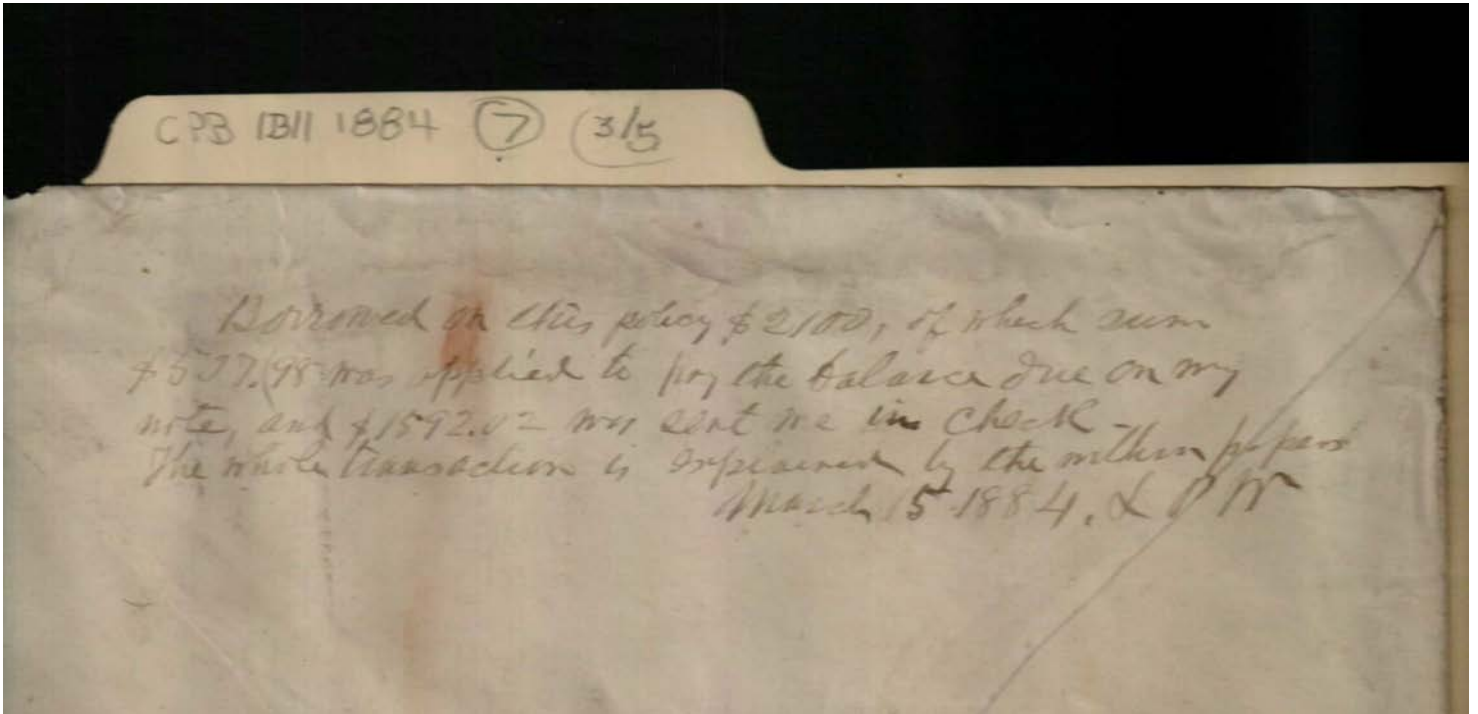 CPB IB11 1884 7 3/5
Borrowed on this policy $2100, of which sum
$507.98 was applied to pay the balance due on my
note, and $1592.02 was sent me in check -
The whole transaction is explained by the within papers
March 5 1884. L P W